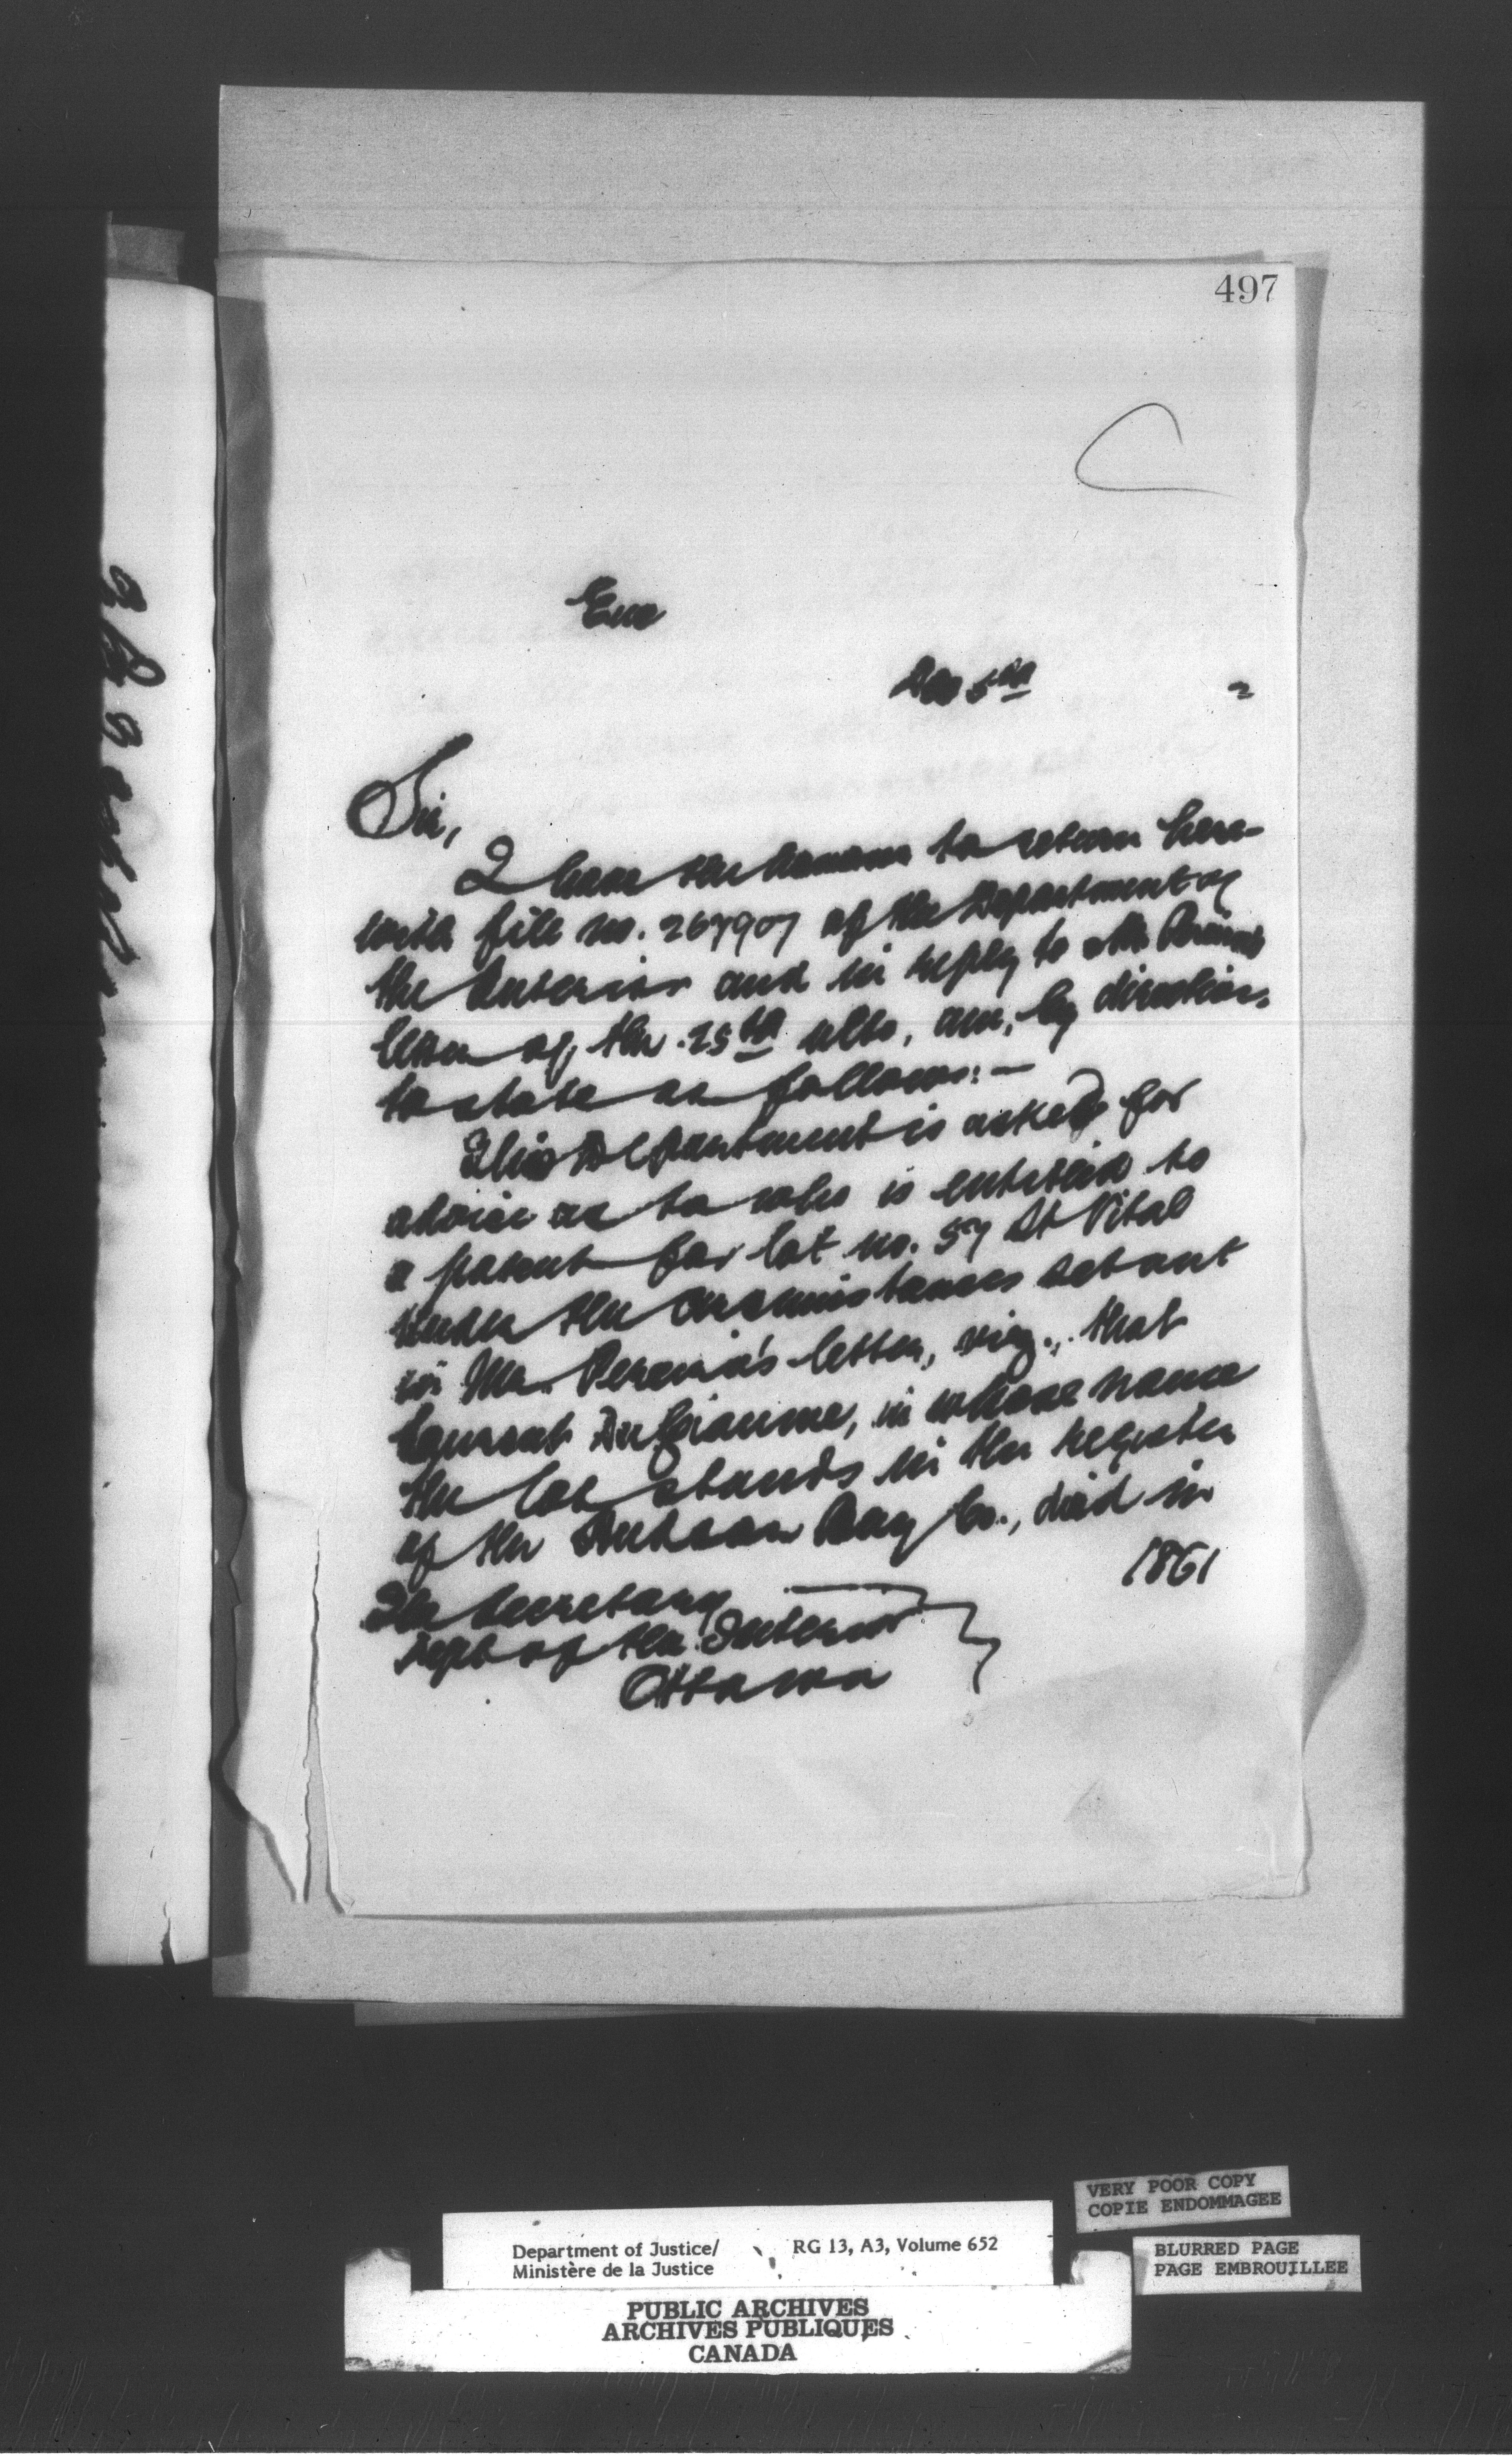 497
Enc
Dec 5th 2
Sir,
I have the honour to return here-
with file no. 267907 of the Department of
the Interior and in reply to Mr. Pereira's
letter of the 25th ulto, am, by direction,
to state as follows:—
This Department is asked for
advice as to who is entitled to
a patent for lot no. 57 St Vital
under the circumstances set out
in Mr. Pereira's letter, viz., that
in whose name
the lot stands in the register
of the Hudson Bay Co., died in
1861
The Secretary
Dept of the Interior
Ottawa
VERY POOR COPY
COPIE ENDOMMAGEE
BLURRED PAGE
PAGE EMBROUILLEE
Department of Justice/ RG 13, A3, Volume 652
Ministère de la Justice
PUBLIC ARCHIVES
ARCHIVES PUBLIQUES
CANADA